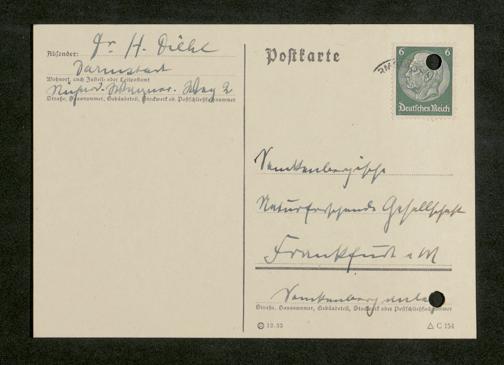 Absender: Dr. H. Diehl
Darmstadt
Wohnort, auch Zustell- oder Leitpostamt
Wagner-Weg 2
Straße, Hausnummer, Gebäudeteil, Stockwerk od. Postschließfachnummer
Postkarte
6 6
Deutsches Reich
Senckenbergische
Naturforschende Gesellschaft
Frankfurt a M
Senckenberganlage
Straße, Hausnummer, Gebäudeteil, Stockwerk oder Postschließfachnummer
C 154